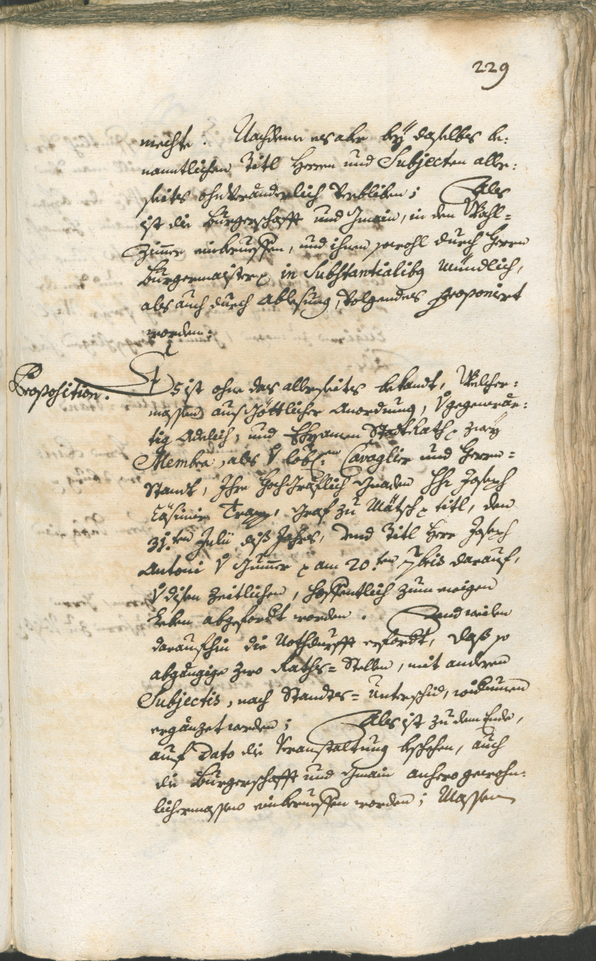 229
mechte. Nachdeme es aber beÿ daselbs be¬
nanntlichen Titl Herrn und Subjecten aller¬
seits ohnveränderlich verbliben; Als
ist die Burgerschafft und Gmain, in den Wahl¬
Zimmer einberueffen, und ihnen sowohl durch Herrn
Burgermaister in Substantialibus mündlich,
als auch durch Ablesung, volgendes proponiert
worden.
Proposition. Es ist ohne das allerseits bekandt, welcher¬
massen aus Göttlicher Anordnung, gegenwer¬
tig Adelich, und Ehrsamen Stadt Rath zway
Membra, als v. löbl. Cavaglier und Herrn¬
Standt, Ihro Hoch Gräflich Gnaden Hr. Joseph
Casimir Trapp, Graf zu Mätsch titl, den
31.ten Julii diß Jahrs, und Titl Herr Joseph
Antoni v Gummer am 20.ten 7bris darauf,
v disen Zeitlichen, hoffentlich zum ewigen
Leben abgefordt worden. Und weilen
daraufhin die Notdurfft erfordt, daß so
abgängige zwo Raths-Stellen, mit anderen
Subjectis, nach Standts-Unterschid, widerumen
ergänzet werden; Als ist zu dem Ende,
auf dato die Veranstaltung beschehen, auch
die Burgerschafft und Gmain anhero gewohn¬
lichermassen einberueffen worden; Massen